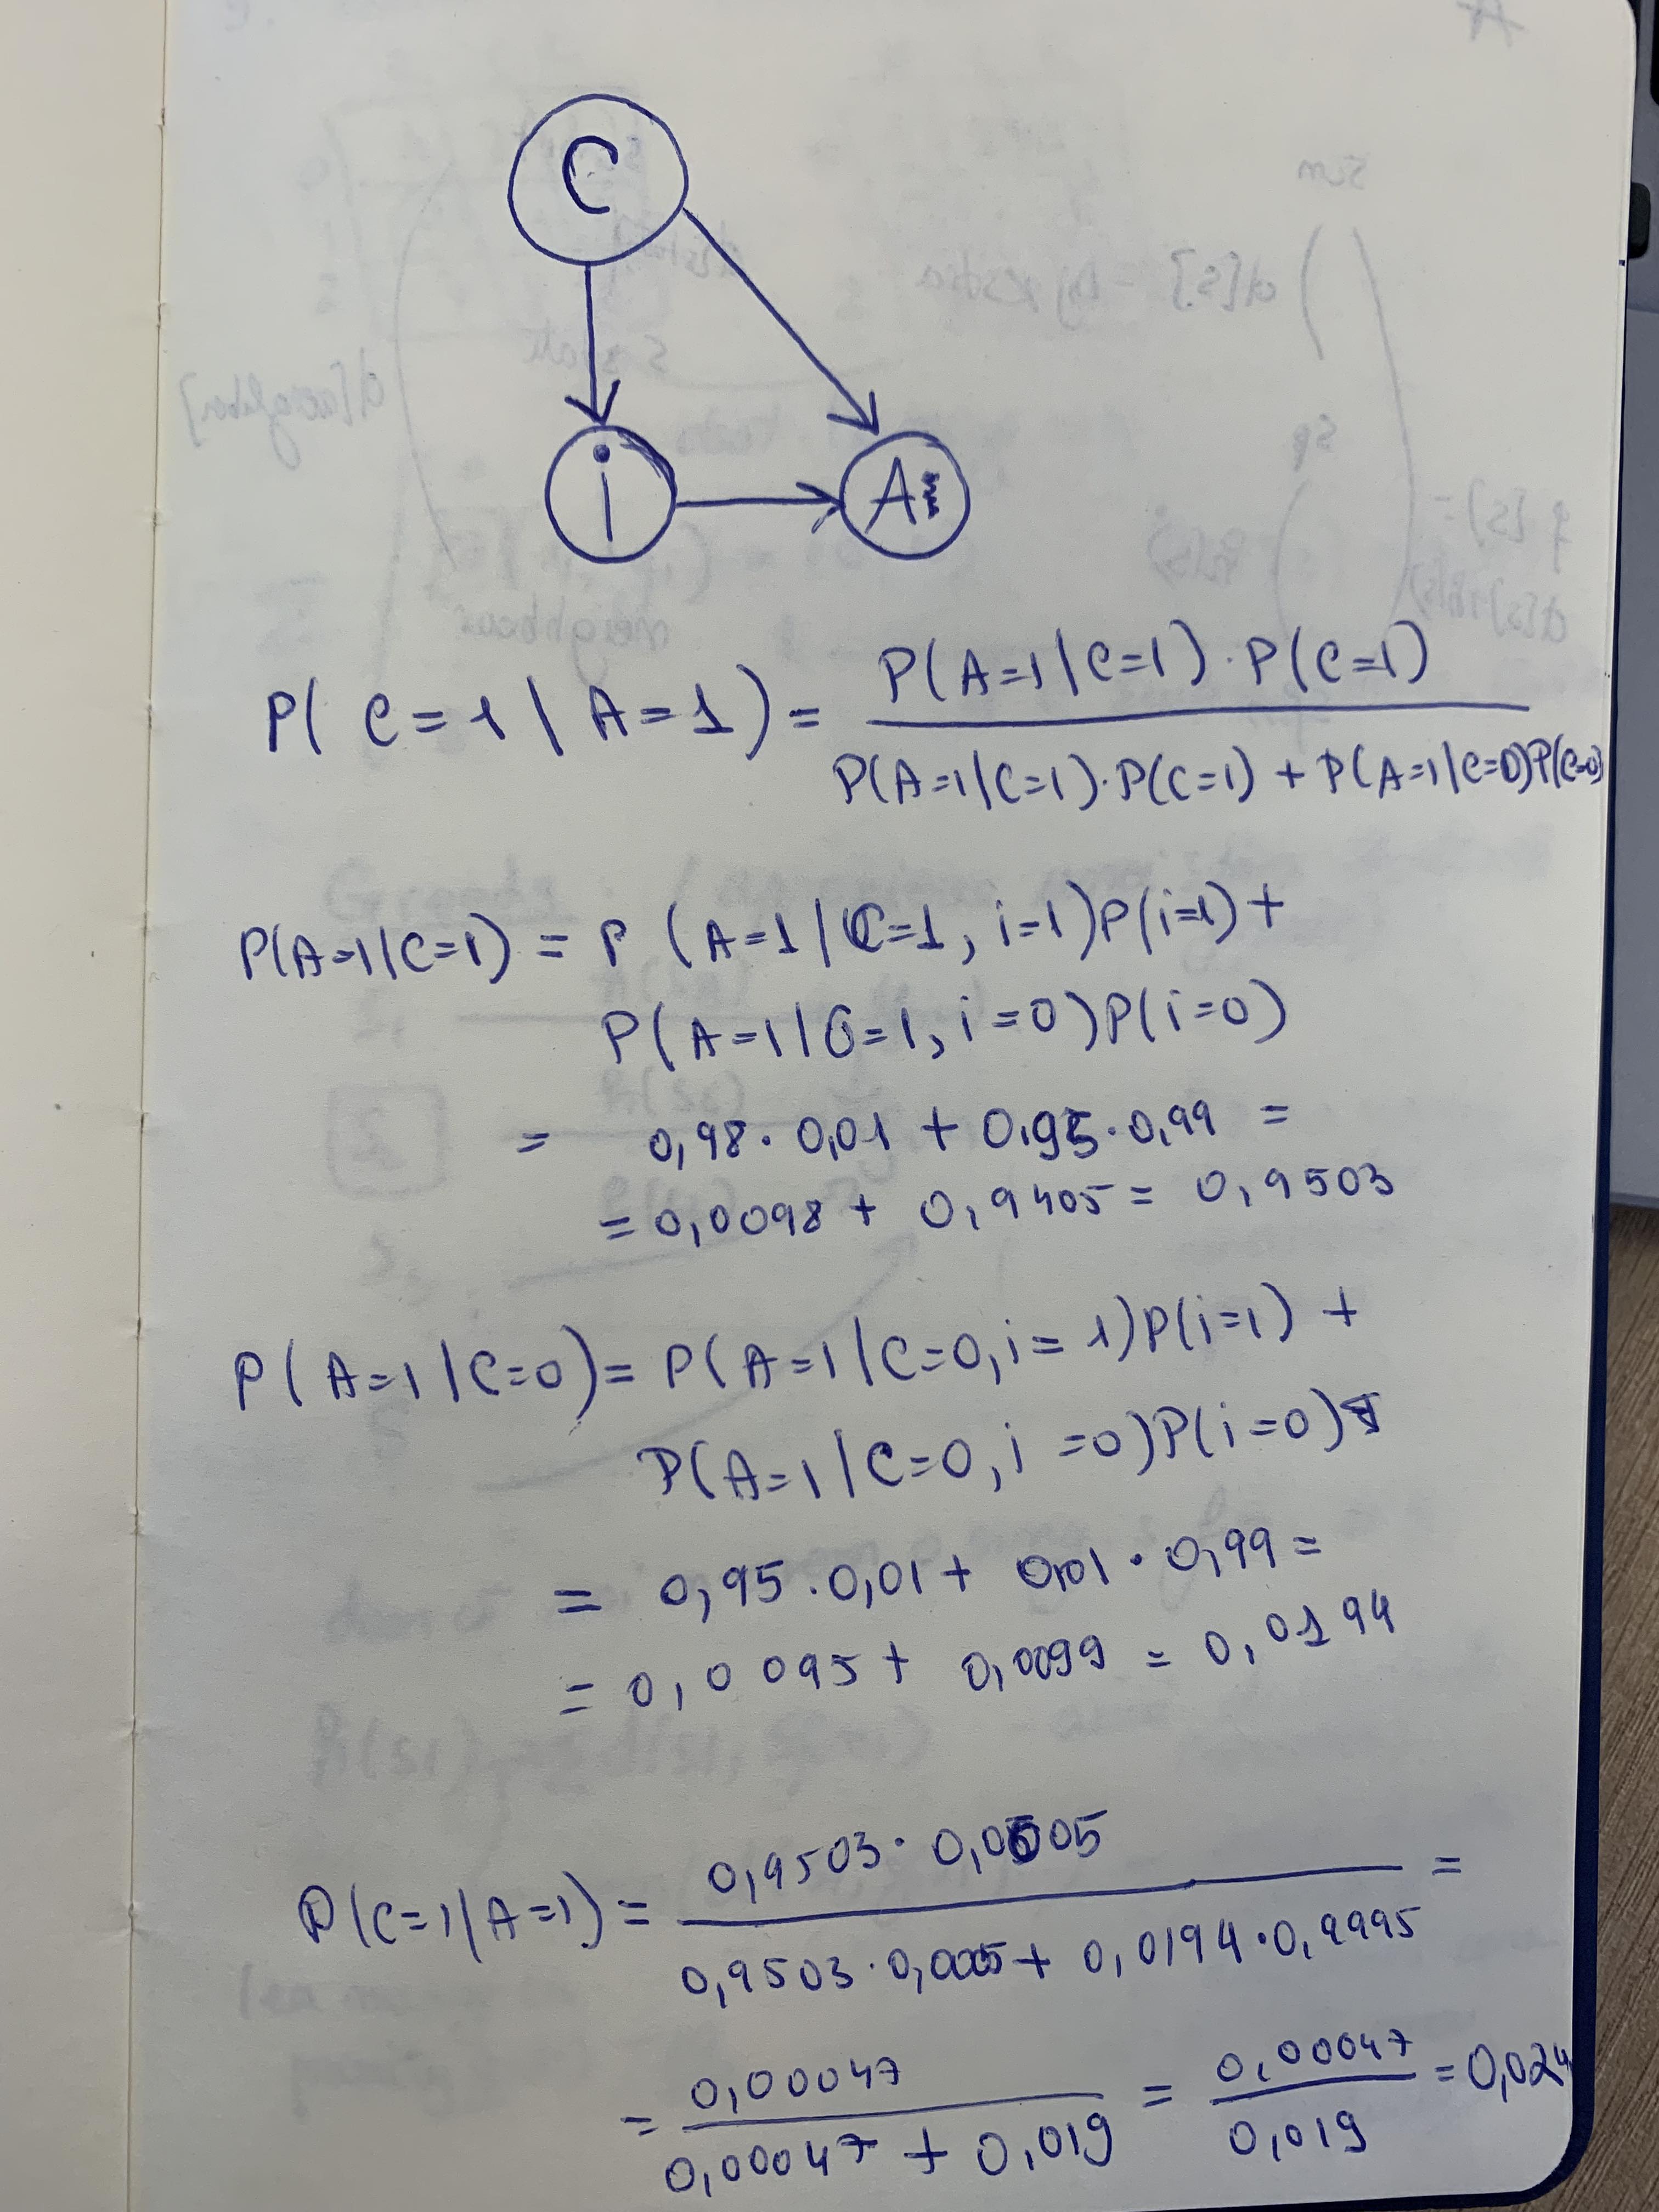 C
i
A
P( C=1 | A=1) = P(A=1|C=1) · P(C=1)
P(A=1|C=1)·P(C=1) + P(A=1|C=0)P(C=0)
P(A=1|C=1) = P (A=1|C=1, i=1)P(i=1)+
P(A=1|C=1, i=0)P(i=0)
= 0,98 · 0,01 + 0,95 · 0,99 =
= 0,0098 + 0,9405 = 0,9503
P(A=1|C=0) = P(A=1|C=0, i=1)P(i=1) +
P(A=1|C=0, i=0)P(i=0)
= 0,95 · 0,01 + 0,01 · 0,99 =
= 0,0095 + 0,0099 = 0,0194
P(C=1|A=1) = 0,9503 · 0,0005 =
0,9503 · 0,0005 + 0,0194 · 0,9995
= 0,00047 = 0,00047 = 0,024
0,00047 + 0,019 0,019